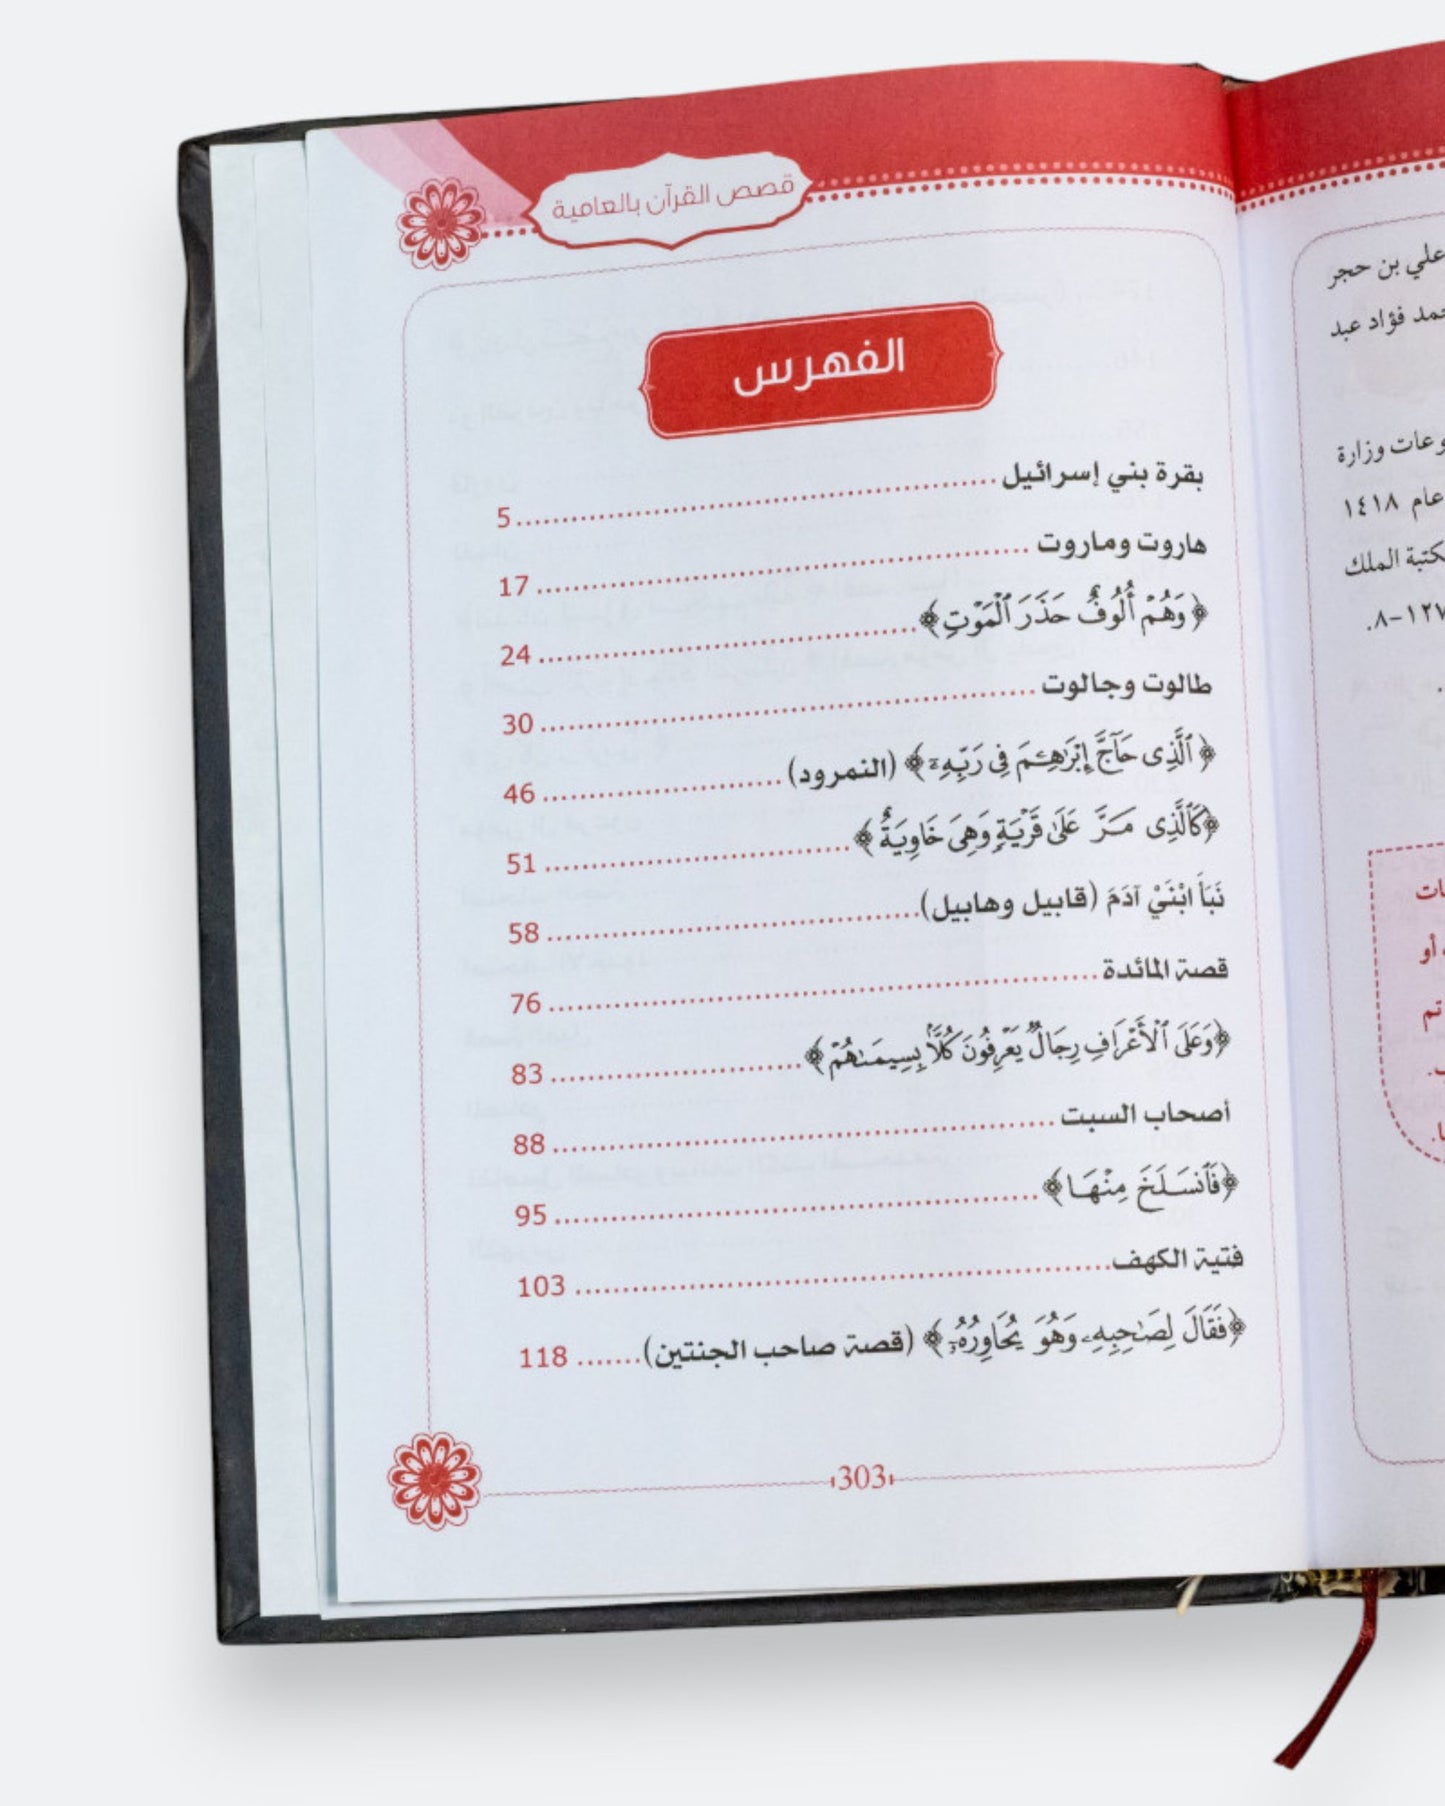 علي بن حجر
فؤاد عبد
وزارة
عام ١٤١٨
الملك
أو
تم
قصص القرآن بالعامية
الفهرس
بقرة بني إسرائيل 5
هاروت وماروت 17
﴿وَهُمْ أُلُوفٌ حَذَرَ ٱلْمَوْتِ﴾ 24
طالوت وجالوت 30
﴿ٱلَّذِى حَآجَّ إِبْرَٰهِـۧمَ فِى رَبِّهِۦٓ﴾ (النمرود) 46
﴿كَٱلَّذِى مَرَّ عَلَىٰ قَرْيَةٍ وَهِىَ خَاوِيَةٌ﴾ 51
نَبَأَ ابْنَيْ آدَمَ (قابيل وهابيل) 58
قصة المائدة 76
﴿وَعَلَى ٱلْأَعْرَافِ رِجَالٌ يَعْرِفُونَ كُلًّۢا بِسِيمَىٰهُمْ﴾ 83
أصحاب السبت 88
﴿فَٱنسَلَخَ مِنْهَا﴾ 95
فتية الكهف 103
﴿فَقَالَ لِصَٰحِبِهِۦ وَهُوَ يُحَاوِرُهُۥٓ﴾ (قصة صاحب الجنتين) 118
303